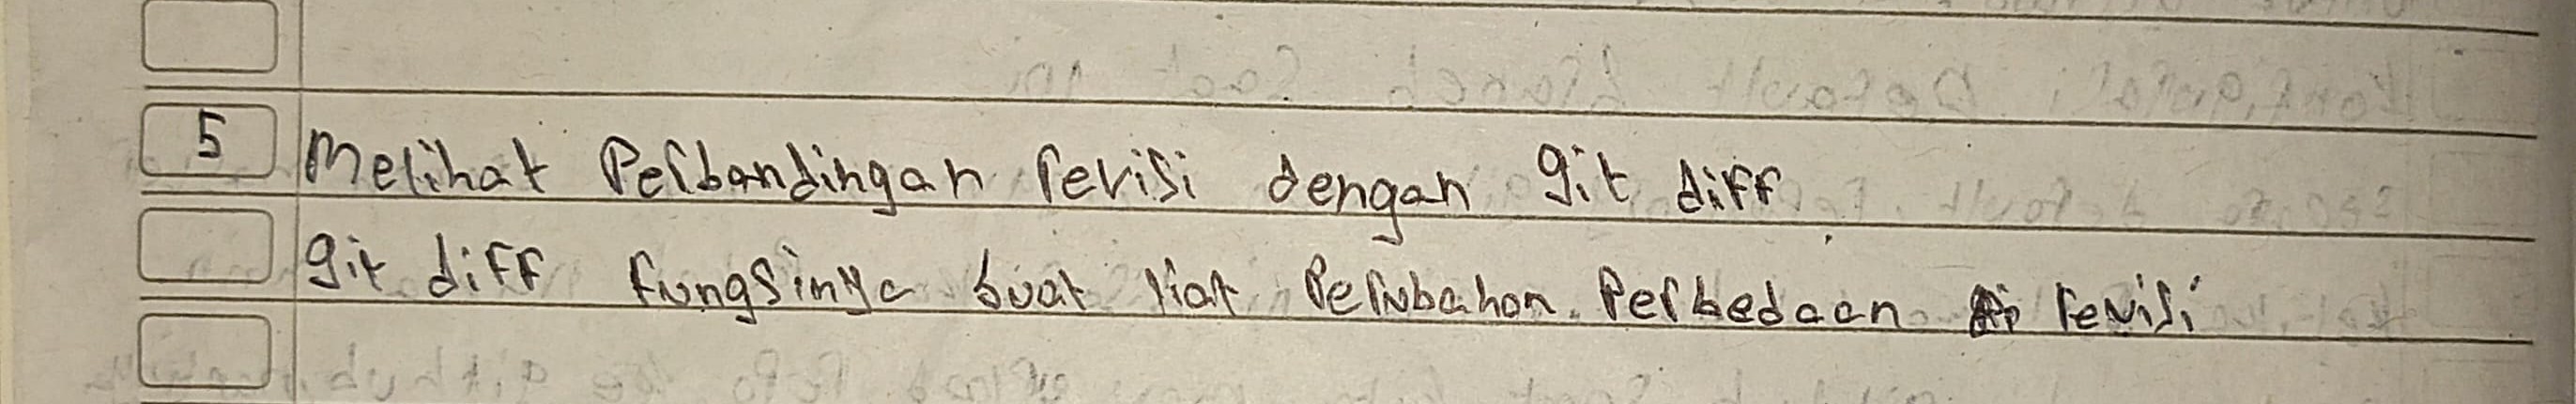 5 Melihat Perbandingan revisi dengan git diff
git diff fungsinya buat liat Perubahan. Perbedaan revisi